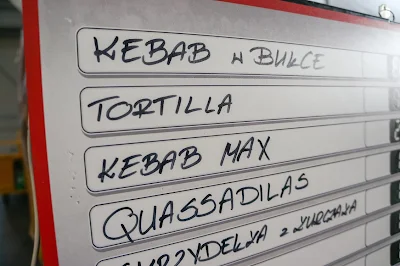 KEBAB W BUŁCE
TORTILLA
KEBAB MAX
QUASSADILAS
SKRZYDEŁKA Z KURCZAKA